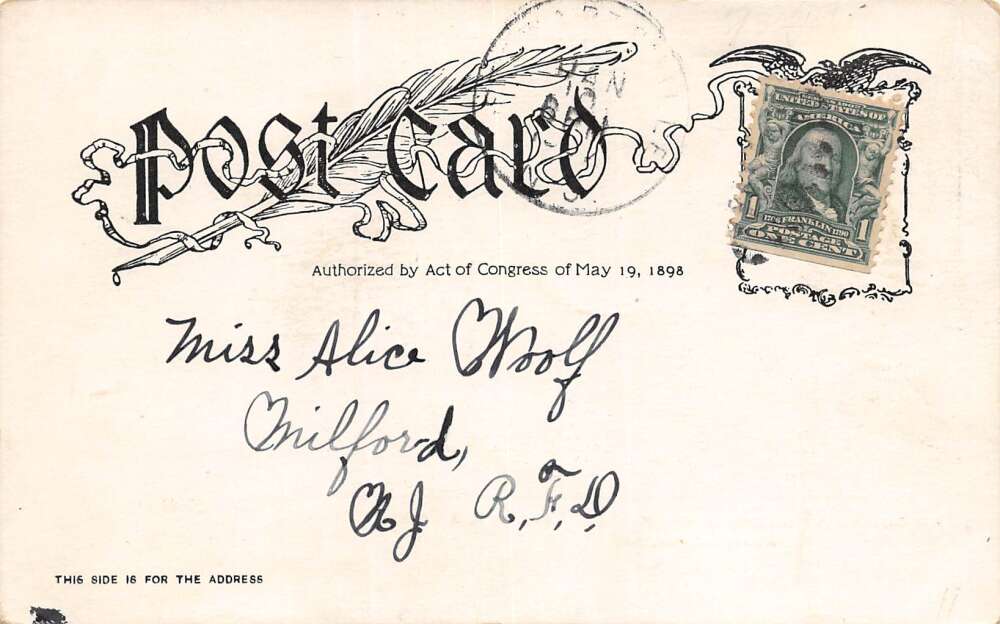 Post Card
JAN
SERIES 1902
UNITED STATES OF
AMERICA
1 1706 FRANKLIN 1790 1
POSTAGE
ONE CENT
Authorized by Act of Congress of May 19, 1898
Miss Alice Woolf
Milford,
N.J. R.F.D.
THIS SIDE IS FOR THE ADDRESS
11